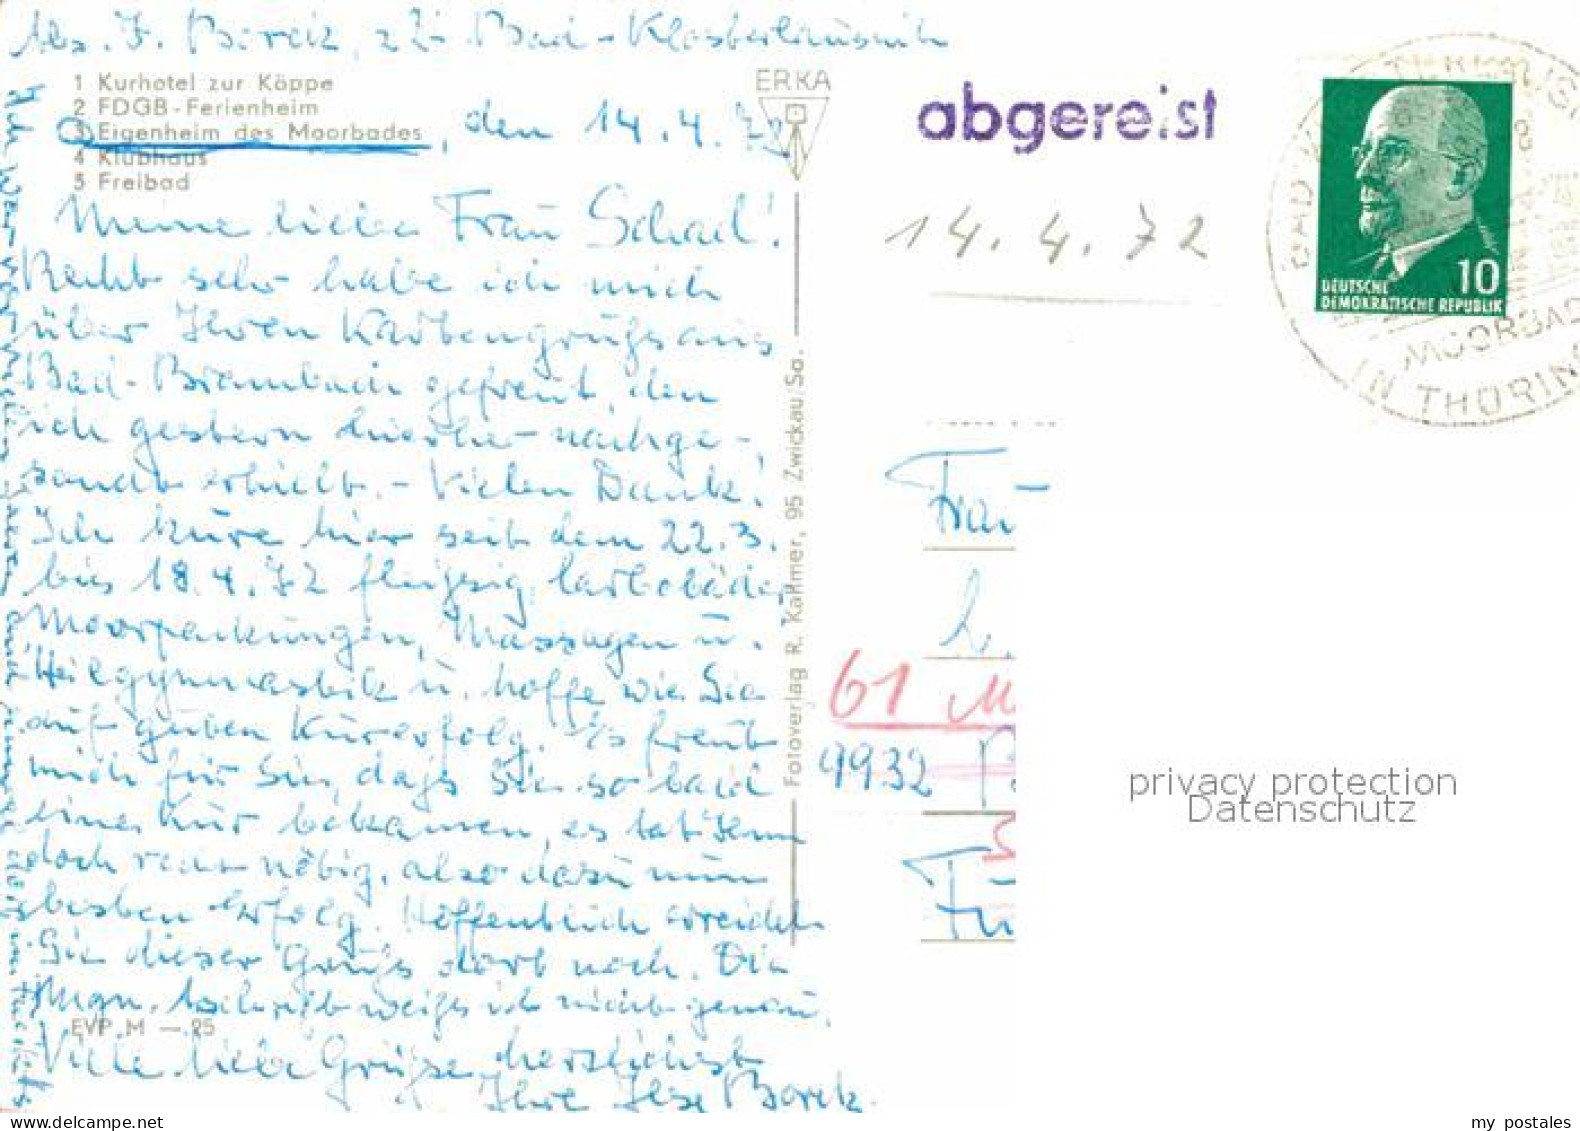 Abs. I. Boretz, z.Zt. Bad-Klosterlausnitz
1 Kurhotel zur Köppe
2 FDGB-Ferienheim
3 Eigenheim des Moorbades, den 14.4.72
4 Klubhaus
5 Freibad
Meine liebe Frau Schad!
Recht sehr habe ich mich
über Ihren Kartengruß aus
Bad-Brambach gefreut, den
ich gestern hierher nachge-
sandt erhielt. - Vielen Dank!
Ich kure hier seit dem 22.3.
bis 18.4.72 fleißig
Moorpackungen, Massagen u.
Heilgymnastik u. hoffe wie Sie
auf guten Kurerfolg. Es freut
mich für Sie, daß Sie so bald
eine Kur bekamen, es tat Ihnen
doch recht nötig, also dazu nun
besten Erfolg. Hoffentlich erreicht
Sie dieser Gruß dort noch. Die
weiß ich nicht genau.
EVP M -.25
Viele liebe Grüße, herzlichst
Ihre Ilse Boretz.
ERKA
Fotoverlag R. Kallmer, 95 Zwickau/Sa.
abgereist
14.4.72
DEUTSCHE
DEMOKRATISCHE REPUBLIK
10
MOORBAD
IN THÜRING
Frau
61 M
9932
privacy protection
Datenschutz
my postales